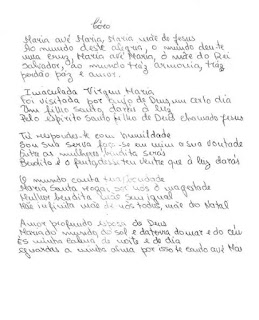 Côro
Maria avé Maria, Maria mãe de Jesus
Ao mundo deste alegria, o mundo deu-te
uma cruz, Maria avé Maria, ó mãe do Rei
Salvador, ao mundo tráz armonia, tráz
perdão paz e amor.
Imaculada Virgem Maria
Foi visitada por anjo de Deus, um certo dia
Um filho Santo, darás à luz
Pelo espirito Santo filho de Deus chamado Jesus
Tú respondes-te com humildade
Sou sua serva faça-se em mim a sua vontade
Entre as mulheres bendita serás
Bendito é o fruto do teu ventre que à luz darás
O mundo canta tua bondade
Maria Santa rogai por nós ó magestade
Mulher bendita não sem igual
Mãe infinita mãe de nós todos, mãe do Natal
Amor profundo esposa de Deus
Maria do mundo do sol e da terra do mar e do céu
És minha calma de noite e de dia
Guardas a minha alma por isso te canto avé Mar